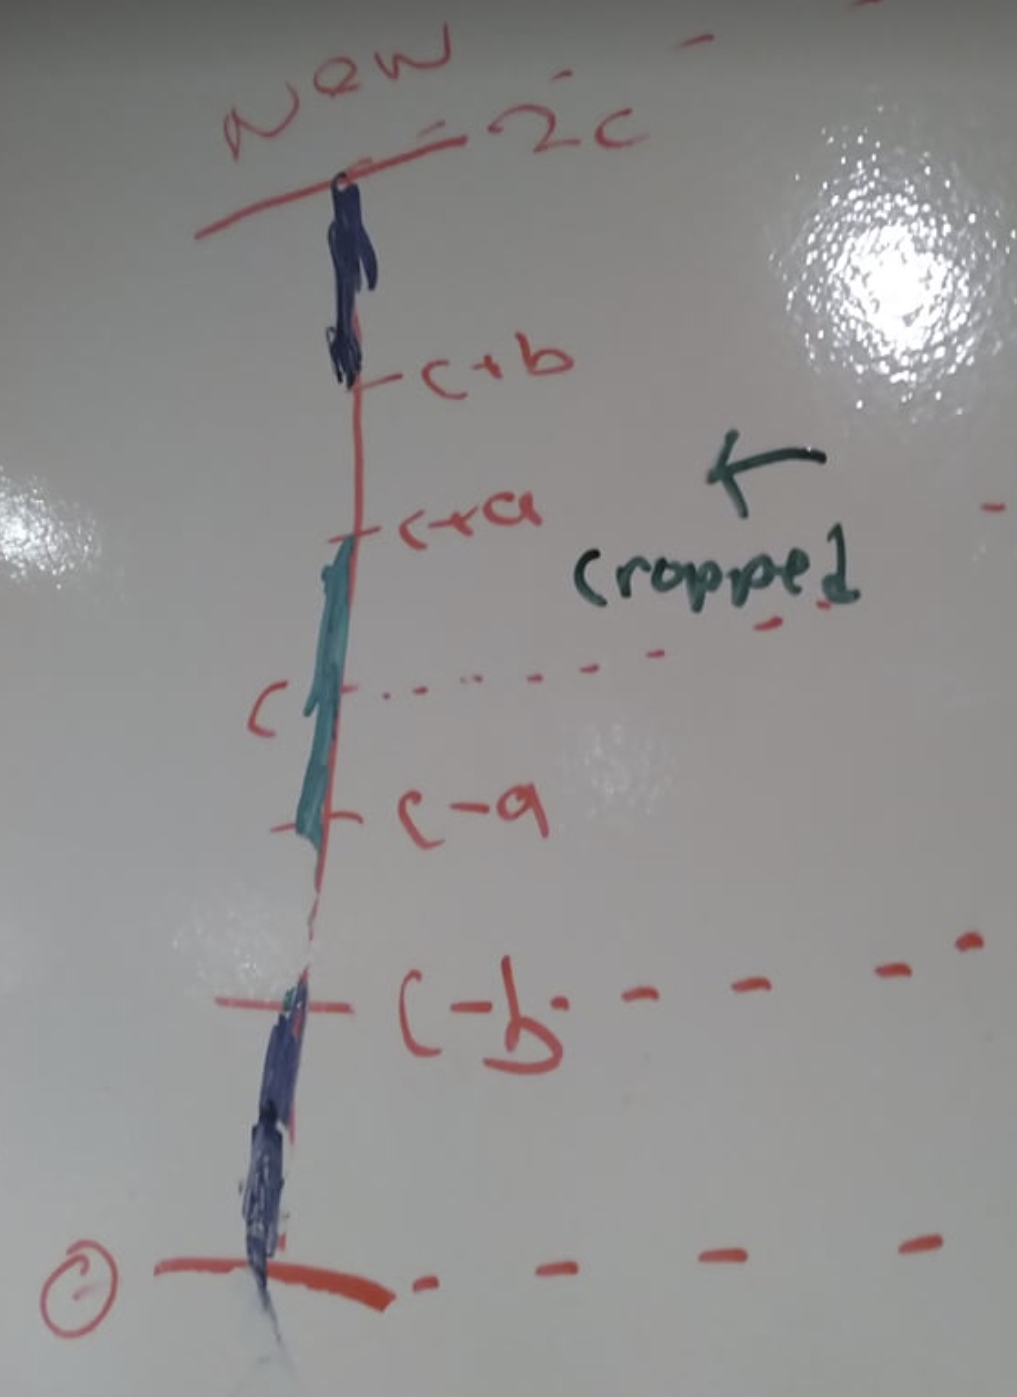 New
2c
c+b
c+a
cropped
c
c-a
c-b
0